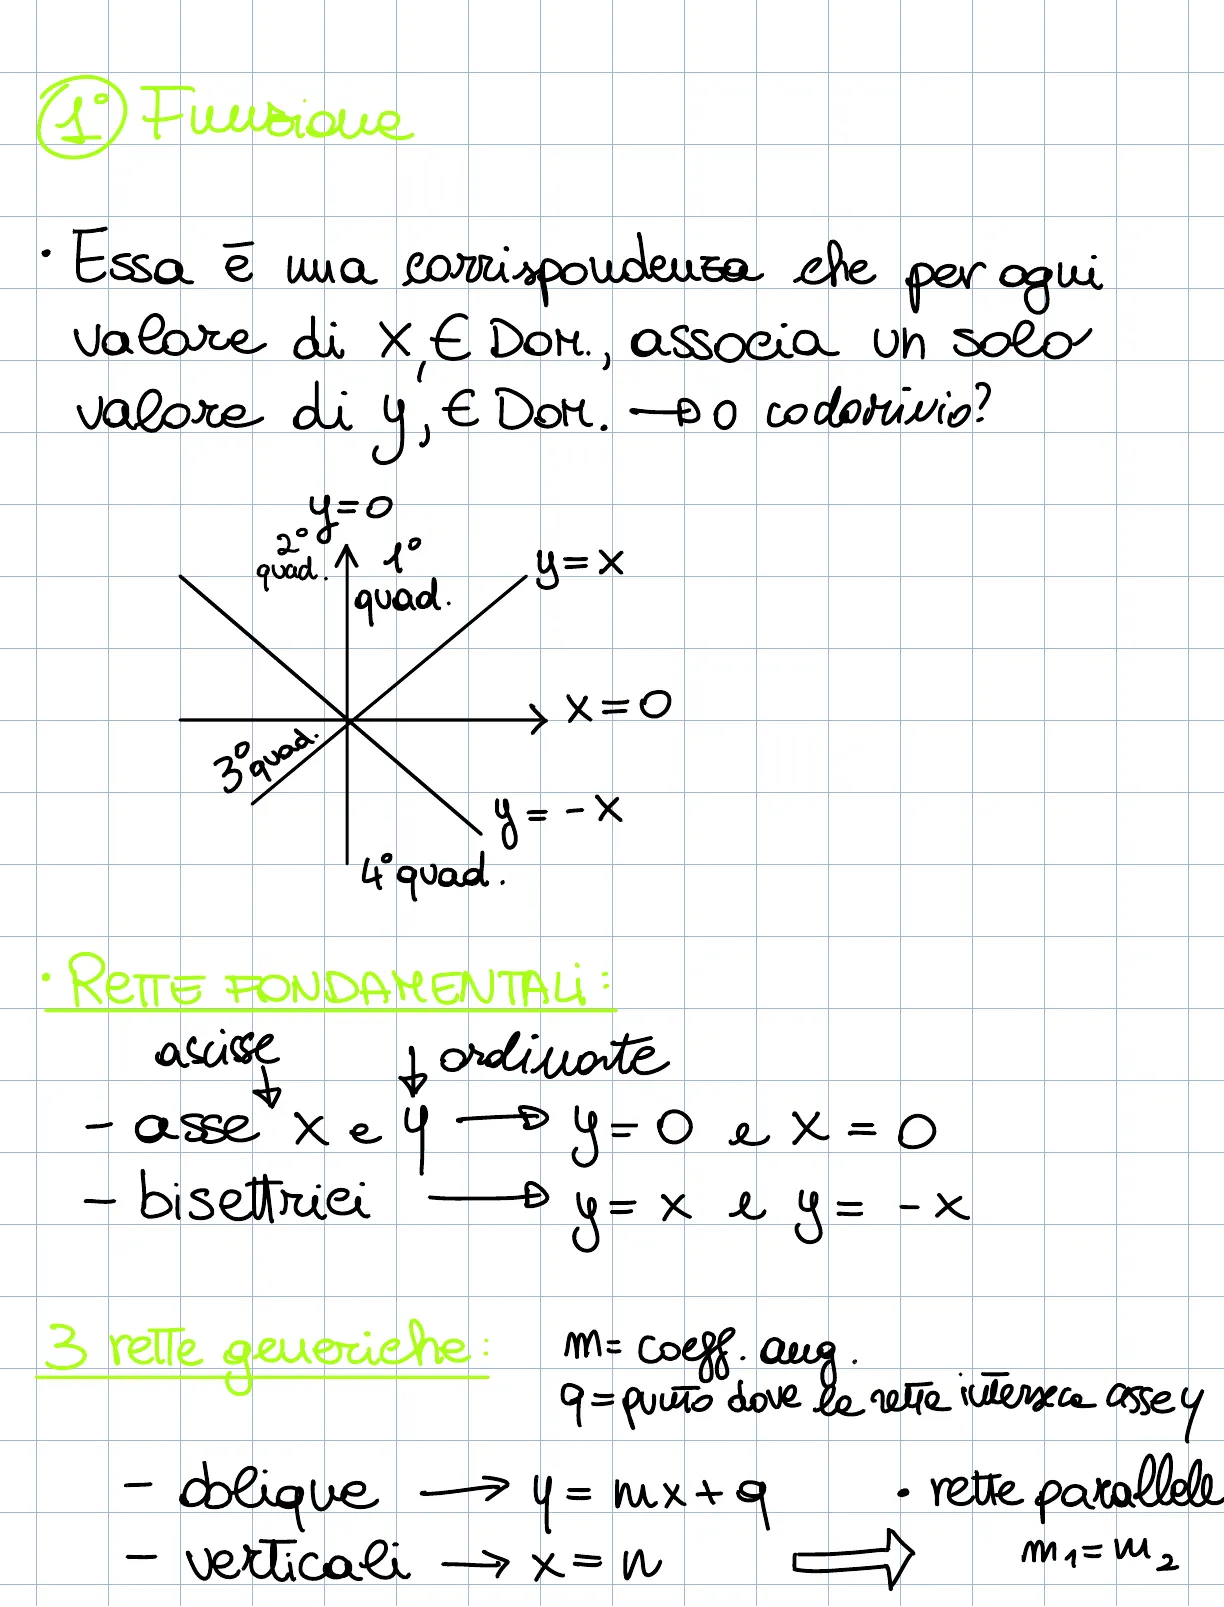 1° Funzione
· Essa è una corrispondenza che per ogni
valore di x, ∈ Dom., associa un solo
valore di y, ∈ Dom. → o codominio?
y=0
2° quad.
1° quad.
y=x
x=0
3° quad.
y=-x
4° quad.
· RETTE FONDAMENTALI:
ascisse ↓ ordinate
- asse x e y → y=0 e x=0
- bisettrici → y=x e y=-x
3 rette generiche:
m= coeff. ang.
q=punto dove la retta interseca asse y
- oblique → y=mx+q
· rette parallele
- verticali → x=n ⇒ m₁=m₂